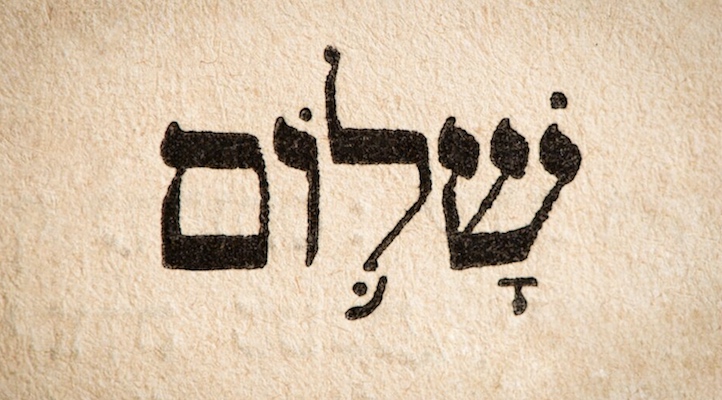 שָׁל֛וֹם